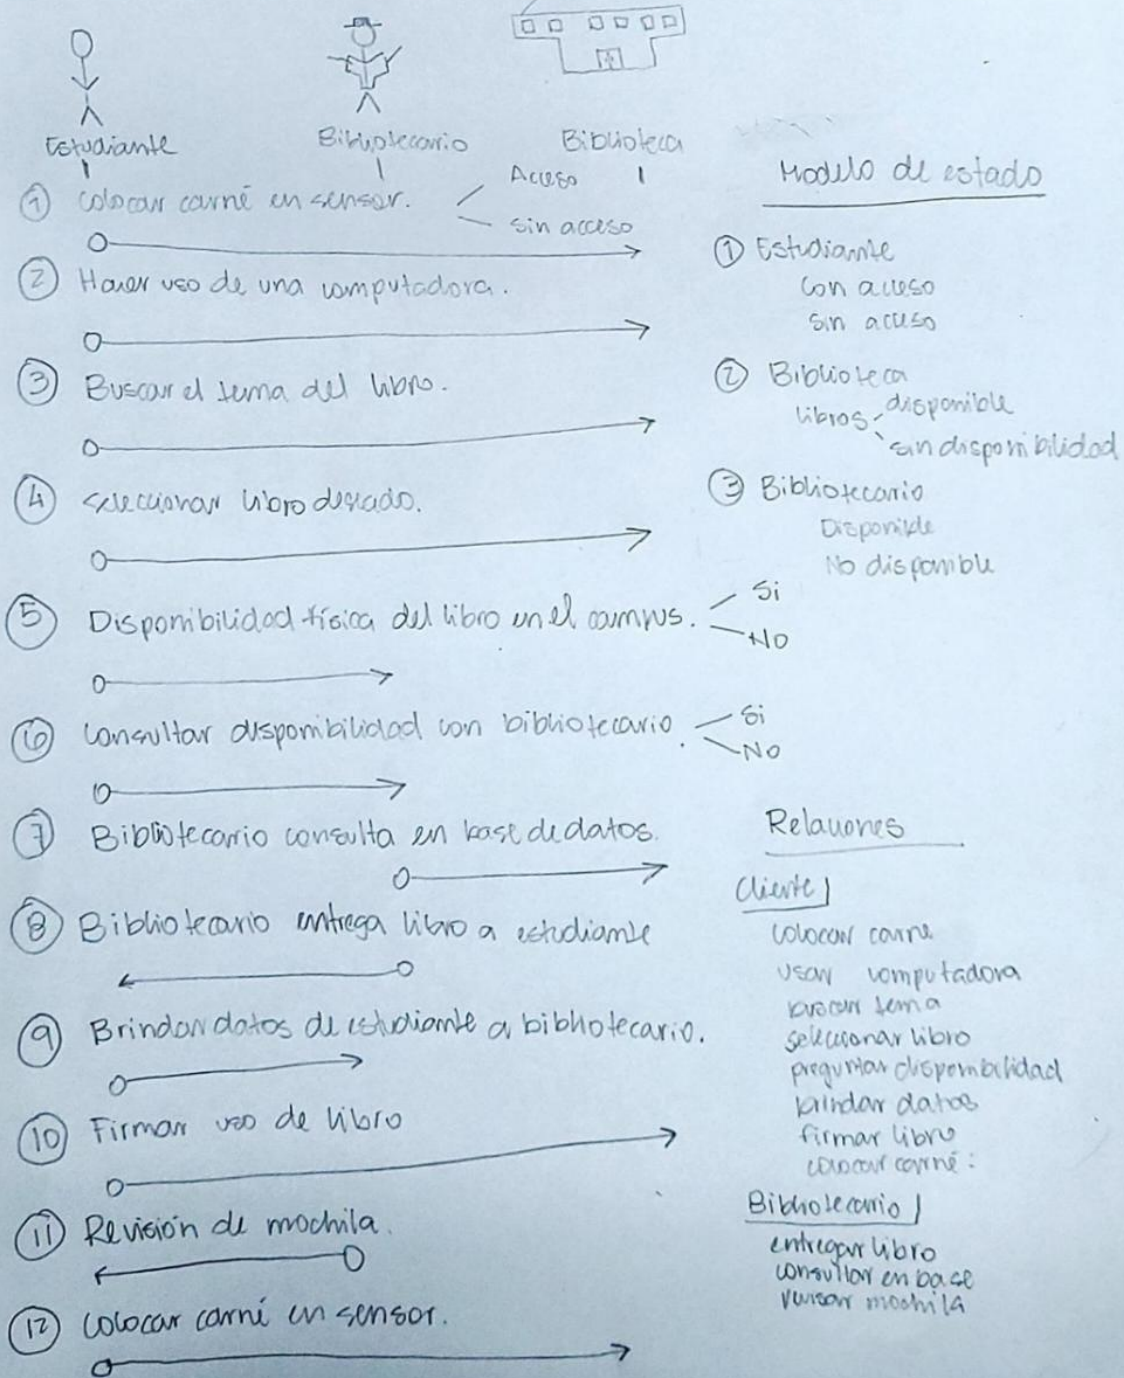 Estudiante
Bibliotecario
Biblioteca
① Colocar carné en sensor.
Acceso
sin acceso
② Hacer uso de una computadora.
③ Buscar el tema del libro.
④ seleccionar libro deseado.
⑤ Disponibilidad física del libro en el campus.
Si
NO
⑥ Consultar disponibilidad con bibliotecario.
Si
NO
⑦ Bibliotecario consulta en base de datos.
⑧ Bibliotecario entrega libro a estudiante
⑨ Brindar datos de estudiante a bibliotecario.
⑩ Firmar uso de libro
⑪ Revisión de mochila.
⑫ Colocar carné en sensor.
Modelo de estado
① Estudiante
con acceso
sin acceso
② Biblioteca
libros
disponible
sin disponibilidad
③ Bibliotecario
Disponible
No disponible
Relaciones
Cliente
colocar carne
usar computadora
buscar tema
seleccionar libro
preguntar disponibilidad
brindar datos
firmar libro
colocar carné
Bibliotecario
entregar libro
consultar en base
revisar mochila